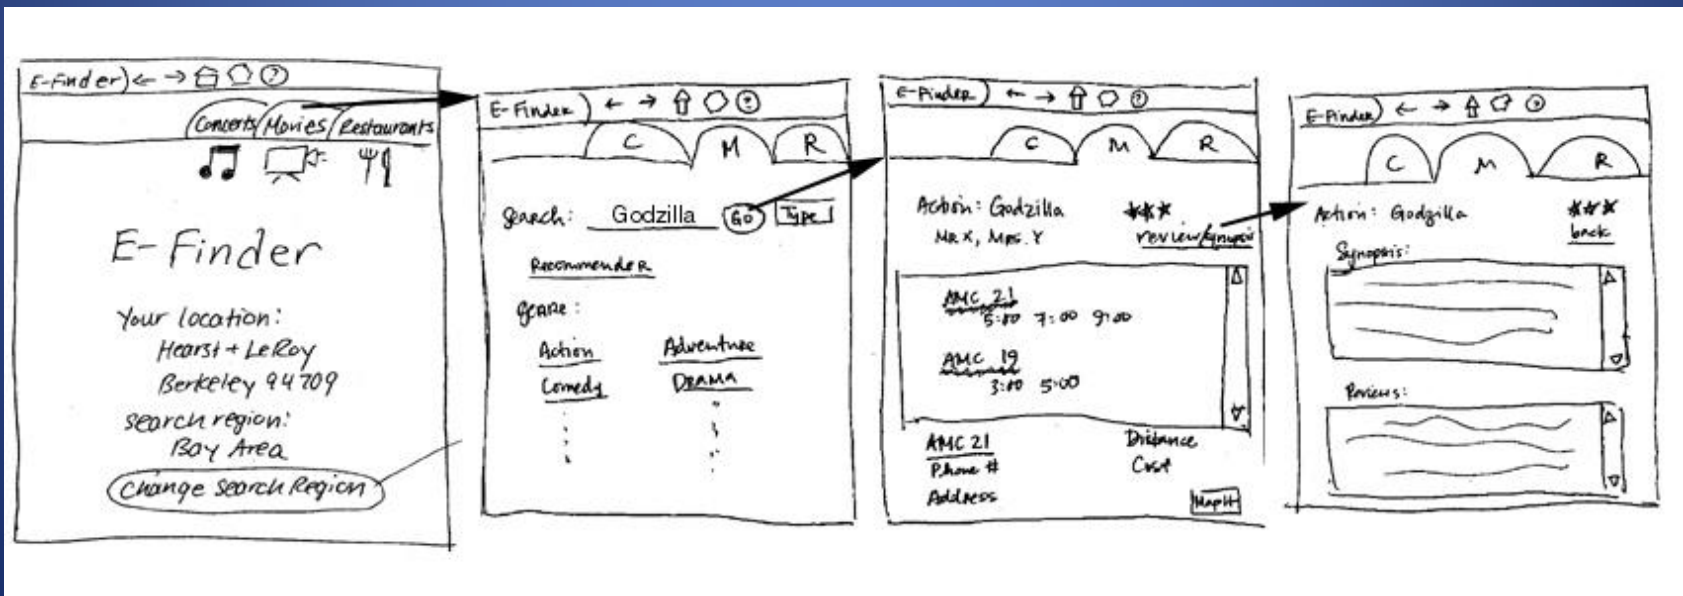 E-Finder
?
Concerts Movies Restaurants
E-Finder
Your location:
Hearst + LeRoy
Berkeley 94709
search region:
Bay Area
Change Search Region
E-Finder
?
C M R
Search: Godzilla Go Type
Recommender
Genre:
Action Adventure
Comedy Drama
E-Finder
?
C M R
Action: Godzilla ***
Mr X, Mrs. Y review/synopsis
AMC 21
5:00 7:00 9:00
AMC 19
3:00 5:00
AMC 21 Distance
Phone # Cost
Address
Map It
E-Finder
?
C M R
Action: Godzilla ***
back
Synopsis:
Reviews: